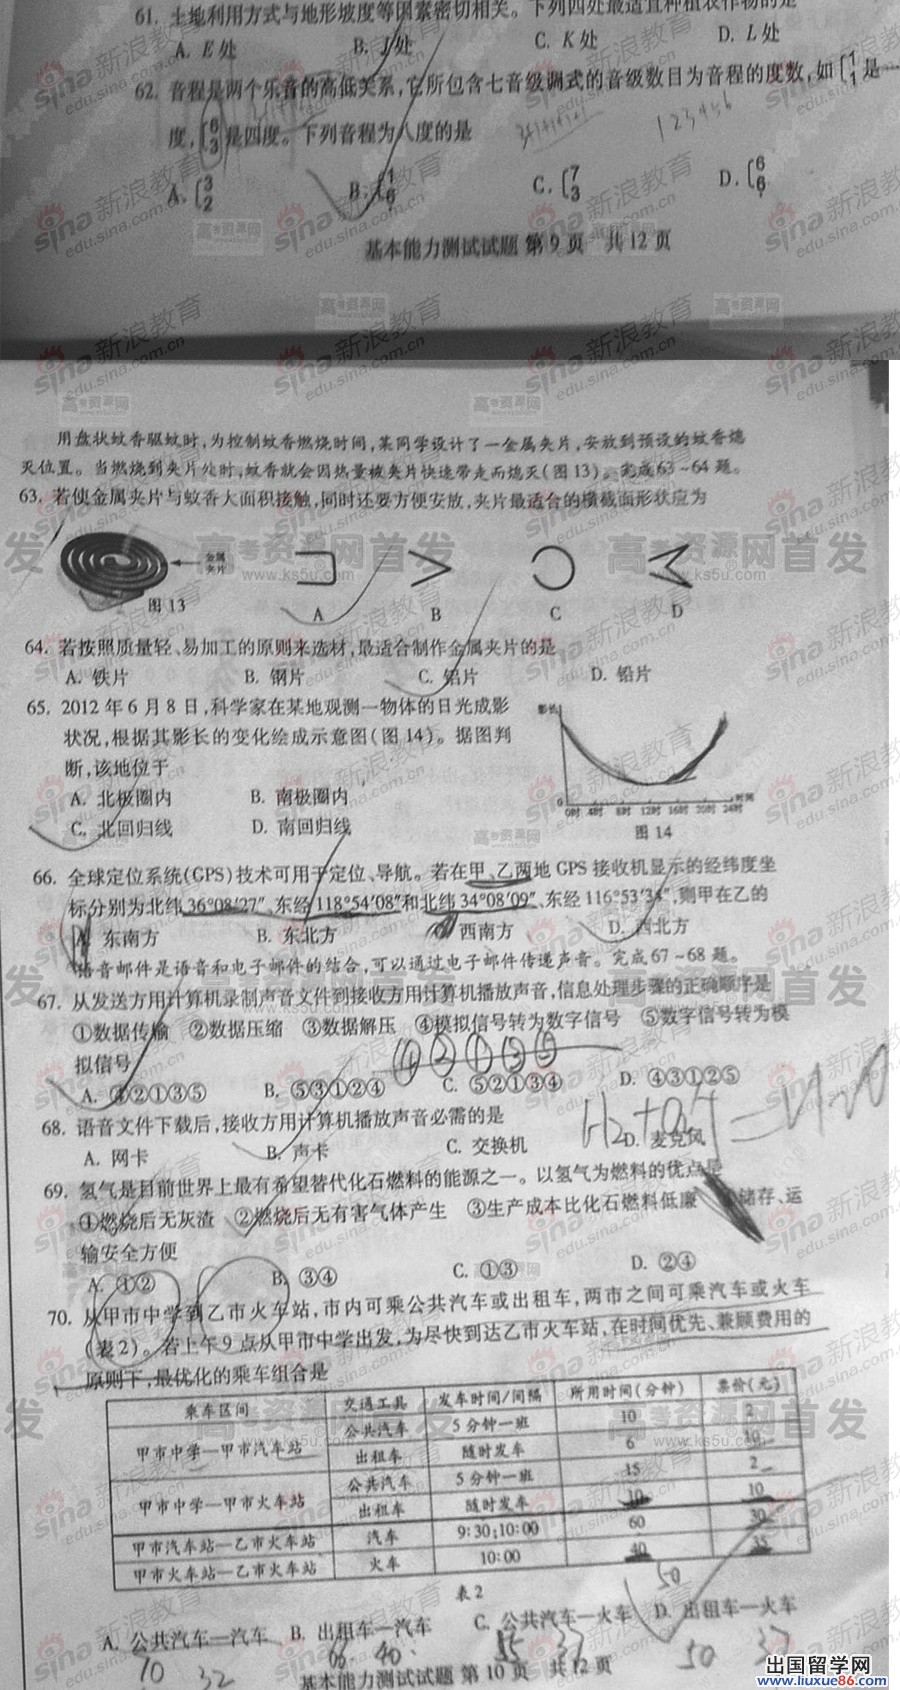 61. 土地利用方式与地形坡度等因素密切相关。下列四处最适宜种植农作物的是
A. E处 B. J处 C. K处 D. L处
62. 音程是两个乐音的高低关系,它所包含七音级调式的音级数目为音程的度数,如[1 1是一
度,[6 3是四度。下列音程为八度的是
A.[3 2 B.[1 6 C.[7 3 D.[6 6
基本能力测试试题 第9页 共12页
用盘状蚊香驱蚊时,为控制蚊香燃烧时间,某同学设计了一金属夹片,安放到预设的蚊香熄
灭位置。当燃烧到夹片处时,蚊香就会因热量被夹片快速带走而熄灭(图13)。完成63~64题。
63. 若使金属夹片与蚊香大面积接触,同时还要方便安放,夹片最适合的横截面形状应为
金属
夹片
图13
A B C D
64. 若按照质量轻、易加工的原则来选材,最适合制作金属夹片的是
A. 铁片 B. 钢片 C. 铝片 D. 铅片
65. 2012年6月8日,科学家在某地观测一物体的日光成影
状况,根据其影长的变化绘成示意图(图14)。据图判
断,该地位于
A. 北极圈内 B. 南极圈内
C. 北回归线 D. 南回归线
影长
0
0时 4时 8时 12时 16时 20时 24时 时间
图14
66. 全球定位系统(GPS)技术可用于定位、导航。若在甲、乙两地GPS接收机显示的经纬度坐
标分别为北纬36°08′27″、东经118°54′08″和北纬34°08′09″、东经116°53′34″,则甲在乙的
A. 东南方 B. 东北方 C. 西南方 D. 西北方
语音邮件是语音和电子邮件的结合,可以通过电子邮件传递声音。完成67~68题。
67. 从发送方用计算机录制声音文件到接收方用计算机播放声音,信息处理步骤的正确顺序是
①数据传输 ②数据压缩 ③数据解压 ④模拟信号转为数字信号 ⑤数字信号转为模
拟信号
④②①③⑤
A. ④②①③⑤ B. ⑤③①②④ C. ⑤②①③④ D. ④③①②⑤
68. 语音文件下载后,接收方用计算机播放声音必需的是
A. 网卡 B. 声卡 C. 交换机 D. 麦克风
69. 氢气是目前世界上最有希望替代化石燃料的能源之一。以氢气为燃料的优点是
①燃烧后无灰渣 ②燃烧后无有害气体产生 ③生产成本比化石燃料低廉 储存、运
输安全方便
A. ①② B. ③④ C. ①③ D. ②④
70. 从甲市中学到乙市火车站,市内可乘公共汽车或出租车,两市之间可乘汽车或火车
(表2)。若上午9点从甲市中学出发,为尽快到达乙市火车站,在时间优先、兼顾费用的
原则下,最优化的乘车组合是
乘车区间 交通工具 发车时间/间隔 所用时间(分钟) 票价(元)
甲市中学—甲市汽车站 公共汽车 5分钟一班 10 2
出租车 随时发车 6 10
甲市中学—甲市火车站 公共汽车 5分钟一班 15 2
出租车 随时发车 10 10
甲市汽车站—乙市火车站 汽车 9:30;10:00 60 30
甲市火车站—乙市火车站 火车 10:00 40 35
表2
50
A. 公共汽车—汽车 B. 出租车—汽车 C. 公共汽车—火车 D. 出租车—火车
70 32 55 37 50 37
基本能力测试试题 第10页 共12页
出国留学网
www.liuxue86.com